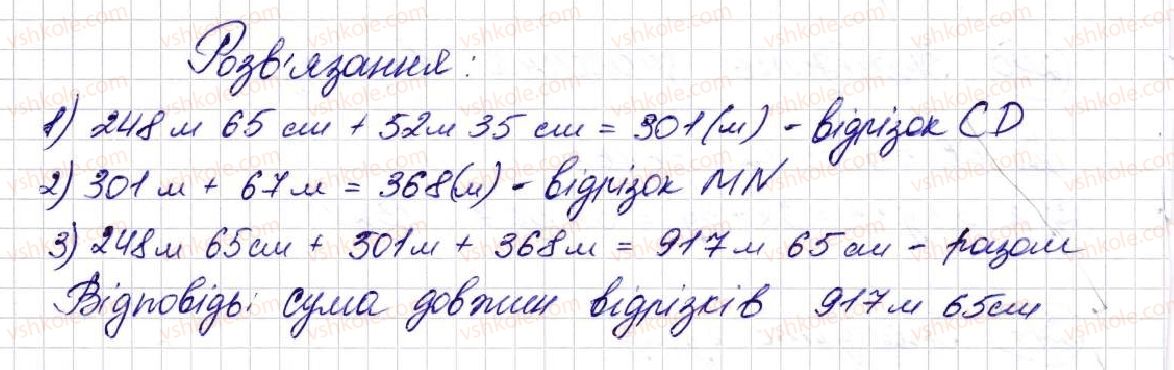 Розв'язання:
1) 248 м 65 см + 52 м 35 см = 301 (м) - відрізок CD
2) 301 м + 67 м = 368 (м) - відрізок MN
3) 248 м 65 см + 301 м + 368 м = 917 м 65 см - разом
Відповідь: сума довжин відрізків 917 м 65 см